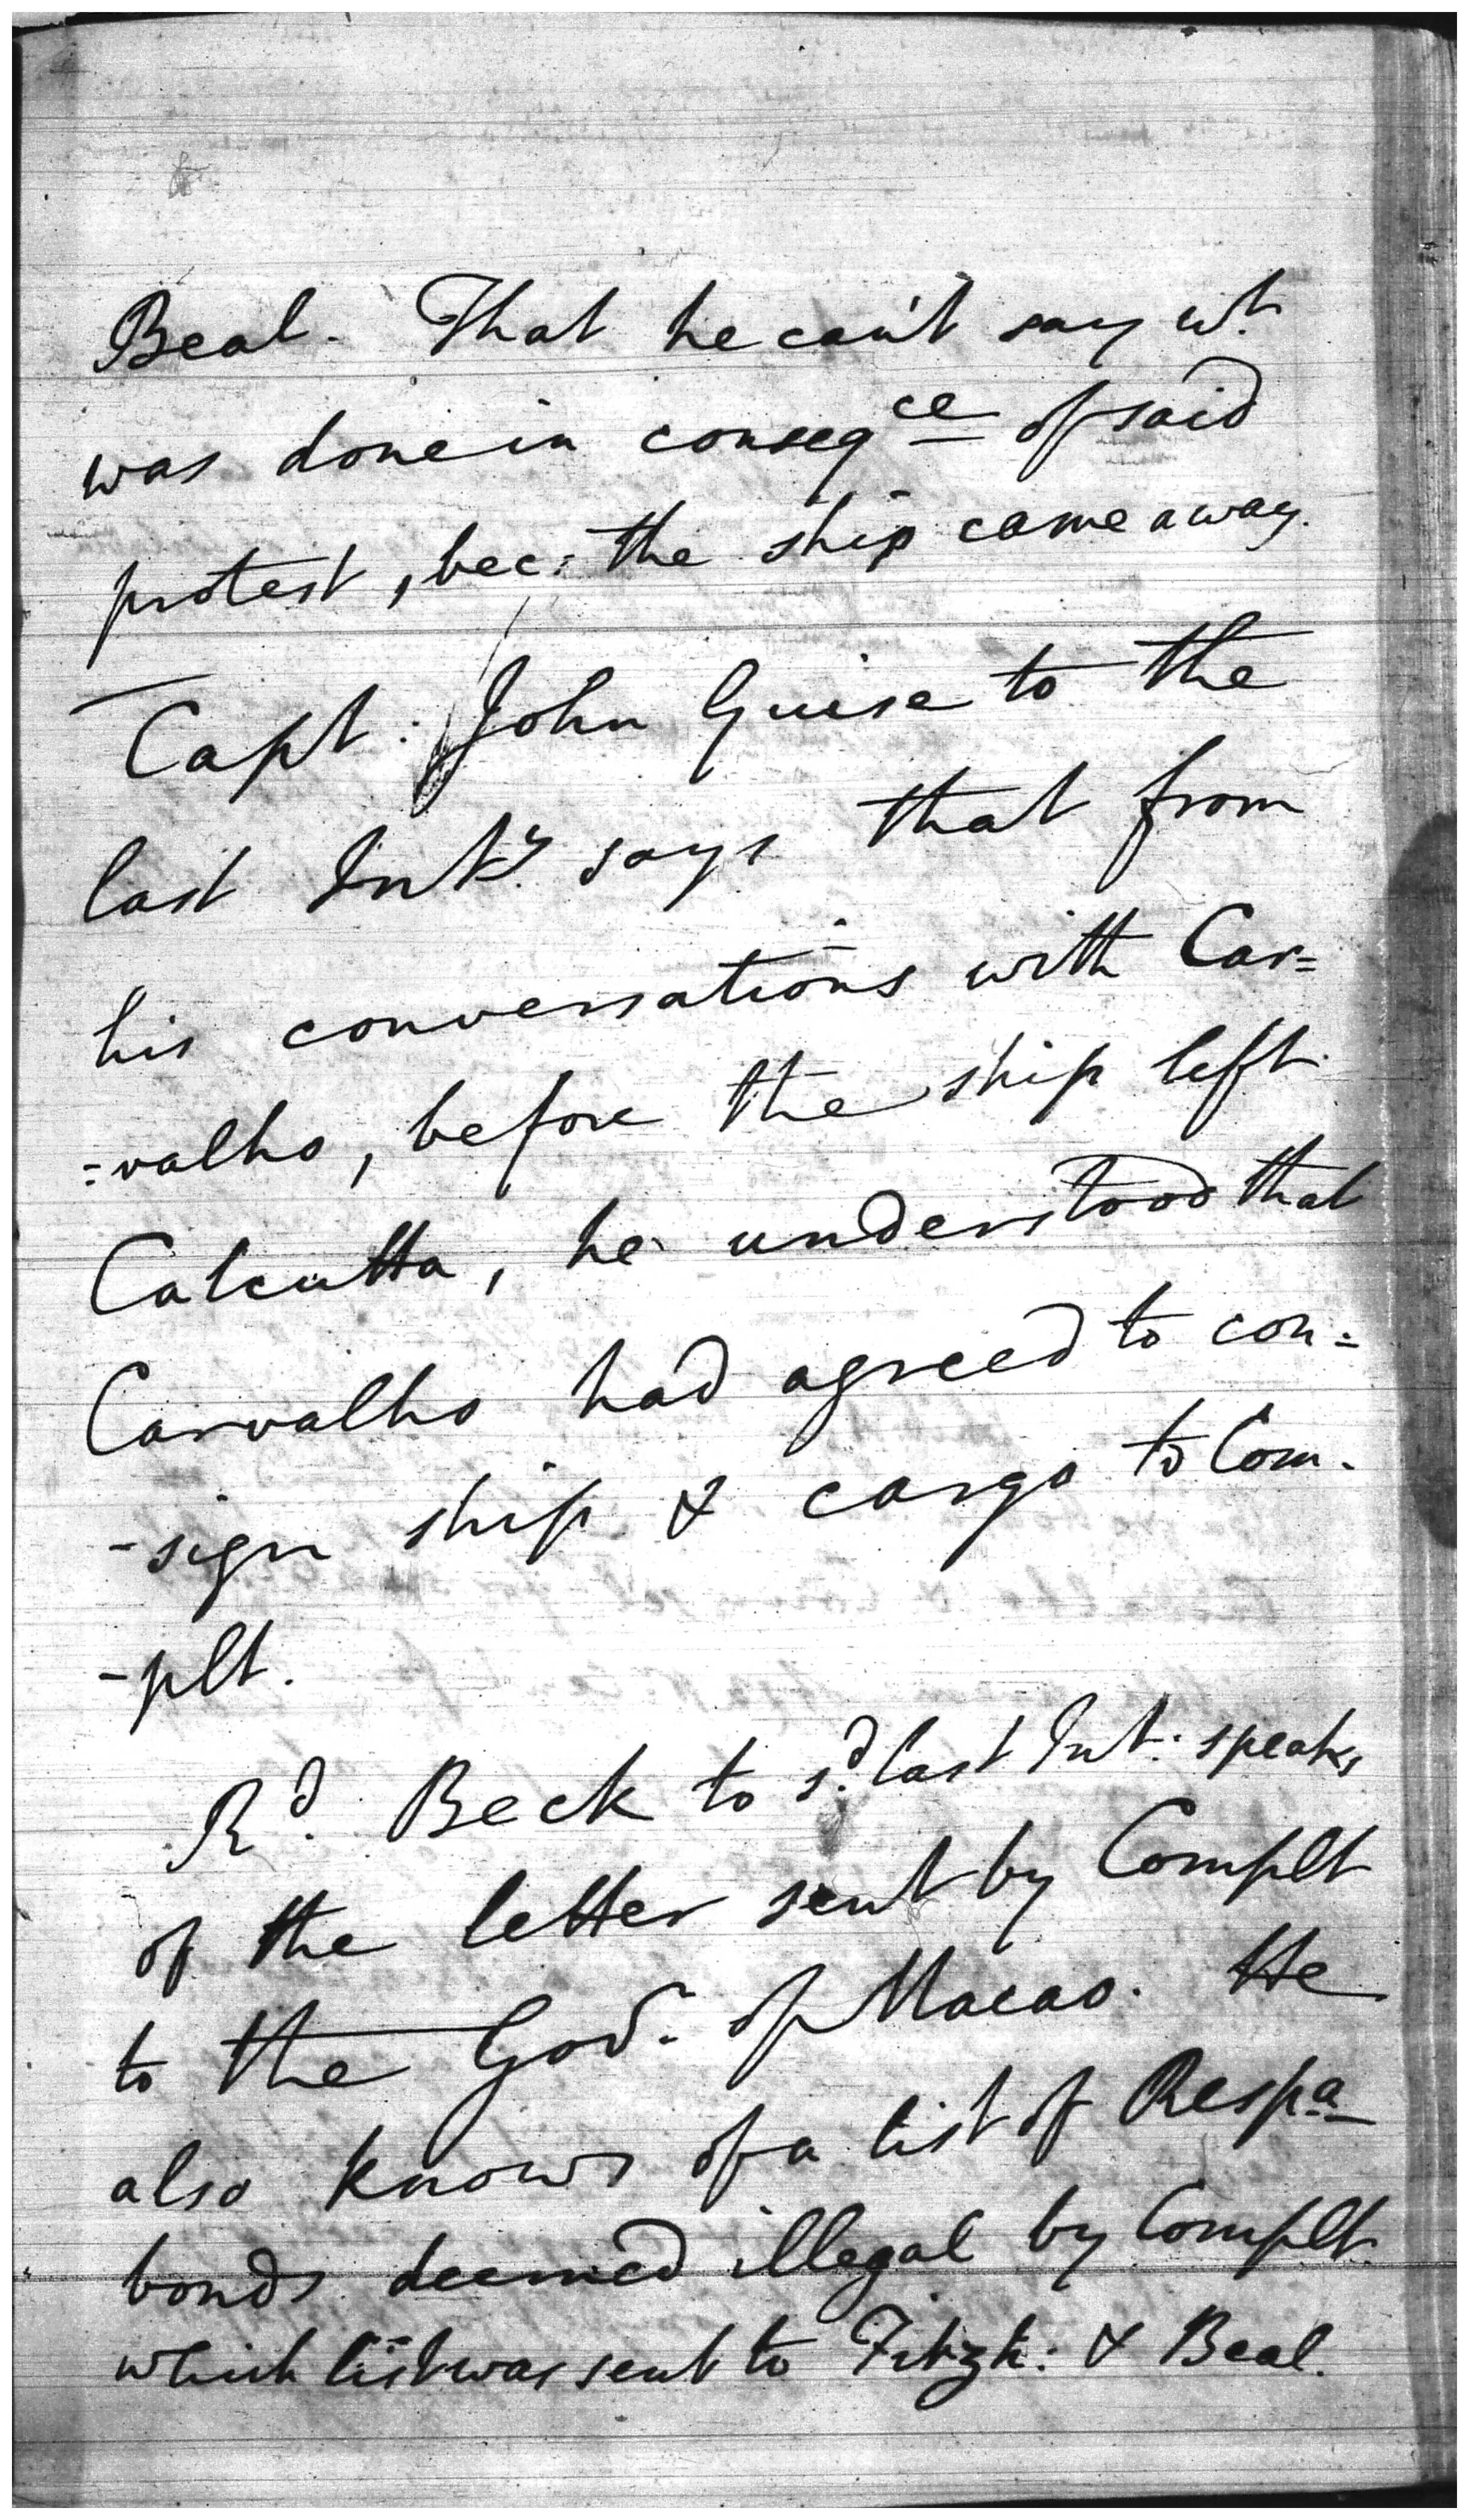 Beal. That he can't say wt.
was done in conseqce of said
protest, bec: the ship came away.
Capt: John Guise to the
last Inty. says that from
his conversations with Car=
=valho, before the ship left
Calcutta, he understood that
Carvalho had agreed to con=
-sign ship & cargo to Com-
-plt.
Rd. Beck to sd. last Int: speaks
of the letter sent by Complt
to the Govr. of Macao. He
also knows of a list of Respa
bonds deemed illegal by Complt.
which list was sent to Fitzh: & Beal.